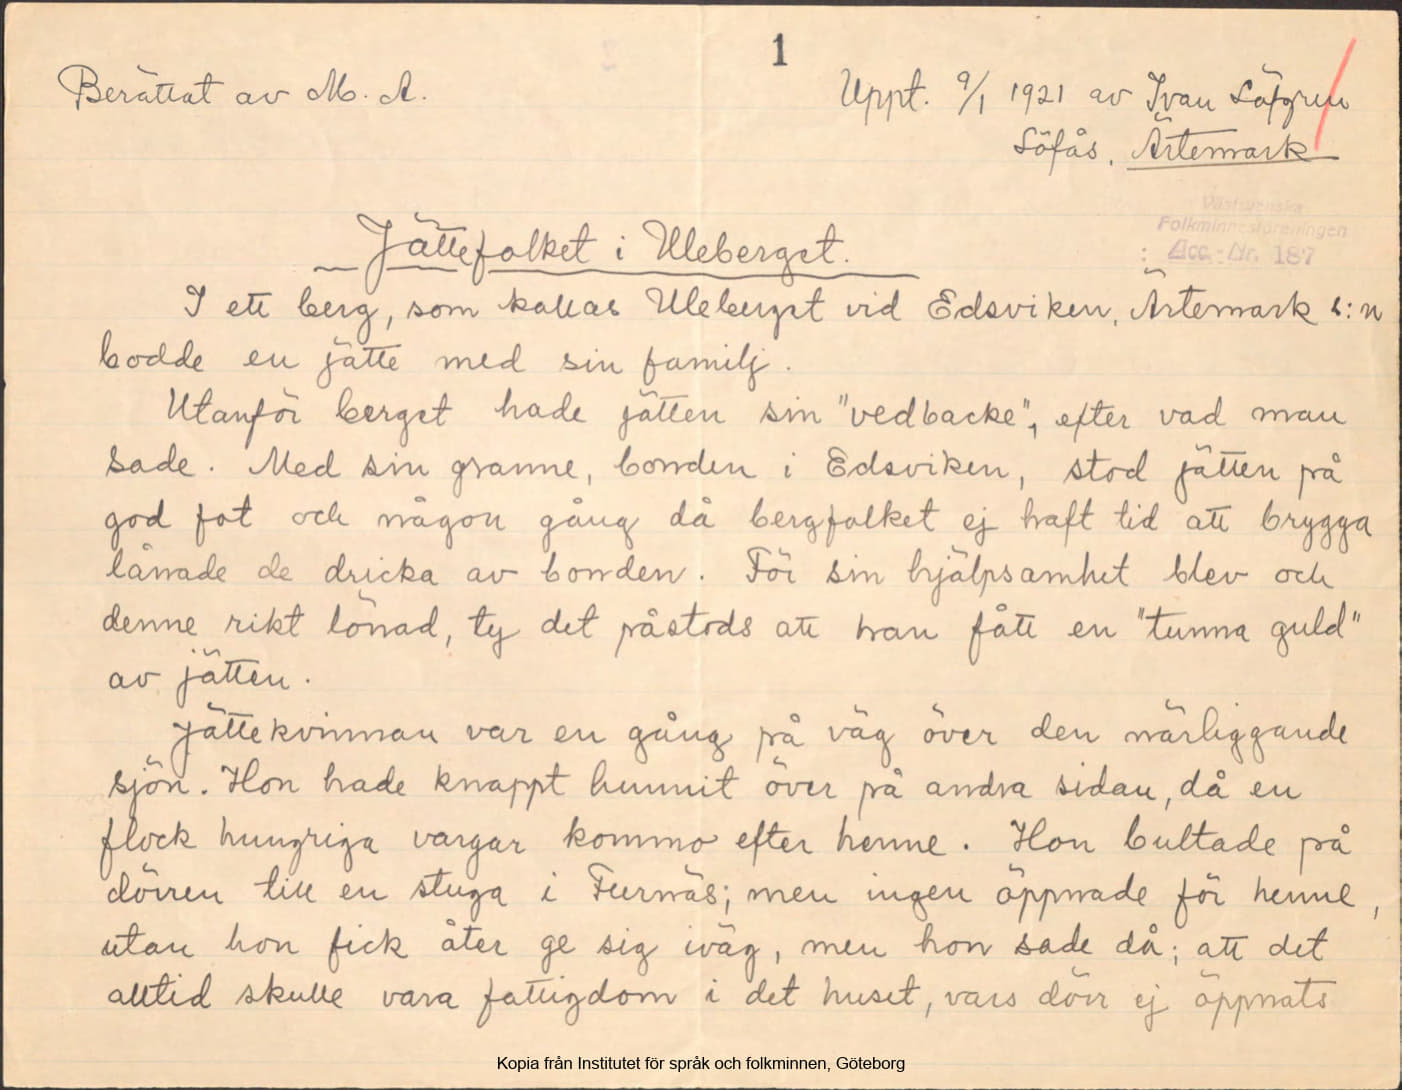 1
Berättat av M. A.
Uppt. 9/1 1921 av Ivan Löfgren
Löfås, Ärtemark
Västsvenska
Folkminnesföreningen
Acc.-Nr. 187
Jättefolket i Uleberget.
I ett berg, som kallas Uleberget vid Edsviken, Ärtemark s:n
bodde en jätte med sin familj.
Utanför berget hade jätten sin "vedbacke", efter vad man
sade. Med sin granne, bonden i Edsviken, stod jätten på
god fot och någon gång då bergfolket ej haft tid att brygga
lånade de dricka av bonden. För sin hjälpsamhet blev och
denne rikt lönad, ty det påstods att han fått en "tunna guld"
av jätten.
Jättekvinnan var en gång på väg över den närliggande
sjön. Hon hade knappt hunnit över på andra sidan, då en
flock hungriga vargar kommo efter henne. Hon bultade på
dörren till en stuga i Furnäs; men ingen öppnade för henne,
utan hon fick åter ge sig iväg, men hon sade då; att det
alltid skulle vara fattigdom i det huset, vars dörr ej öppnats
Kopia från Institutet för språk och folkminnen, Göteborg